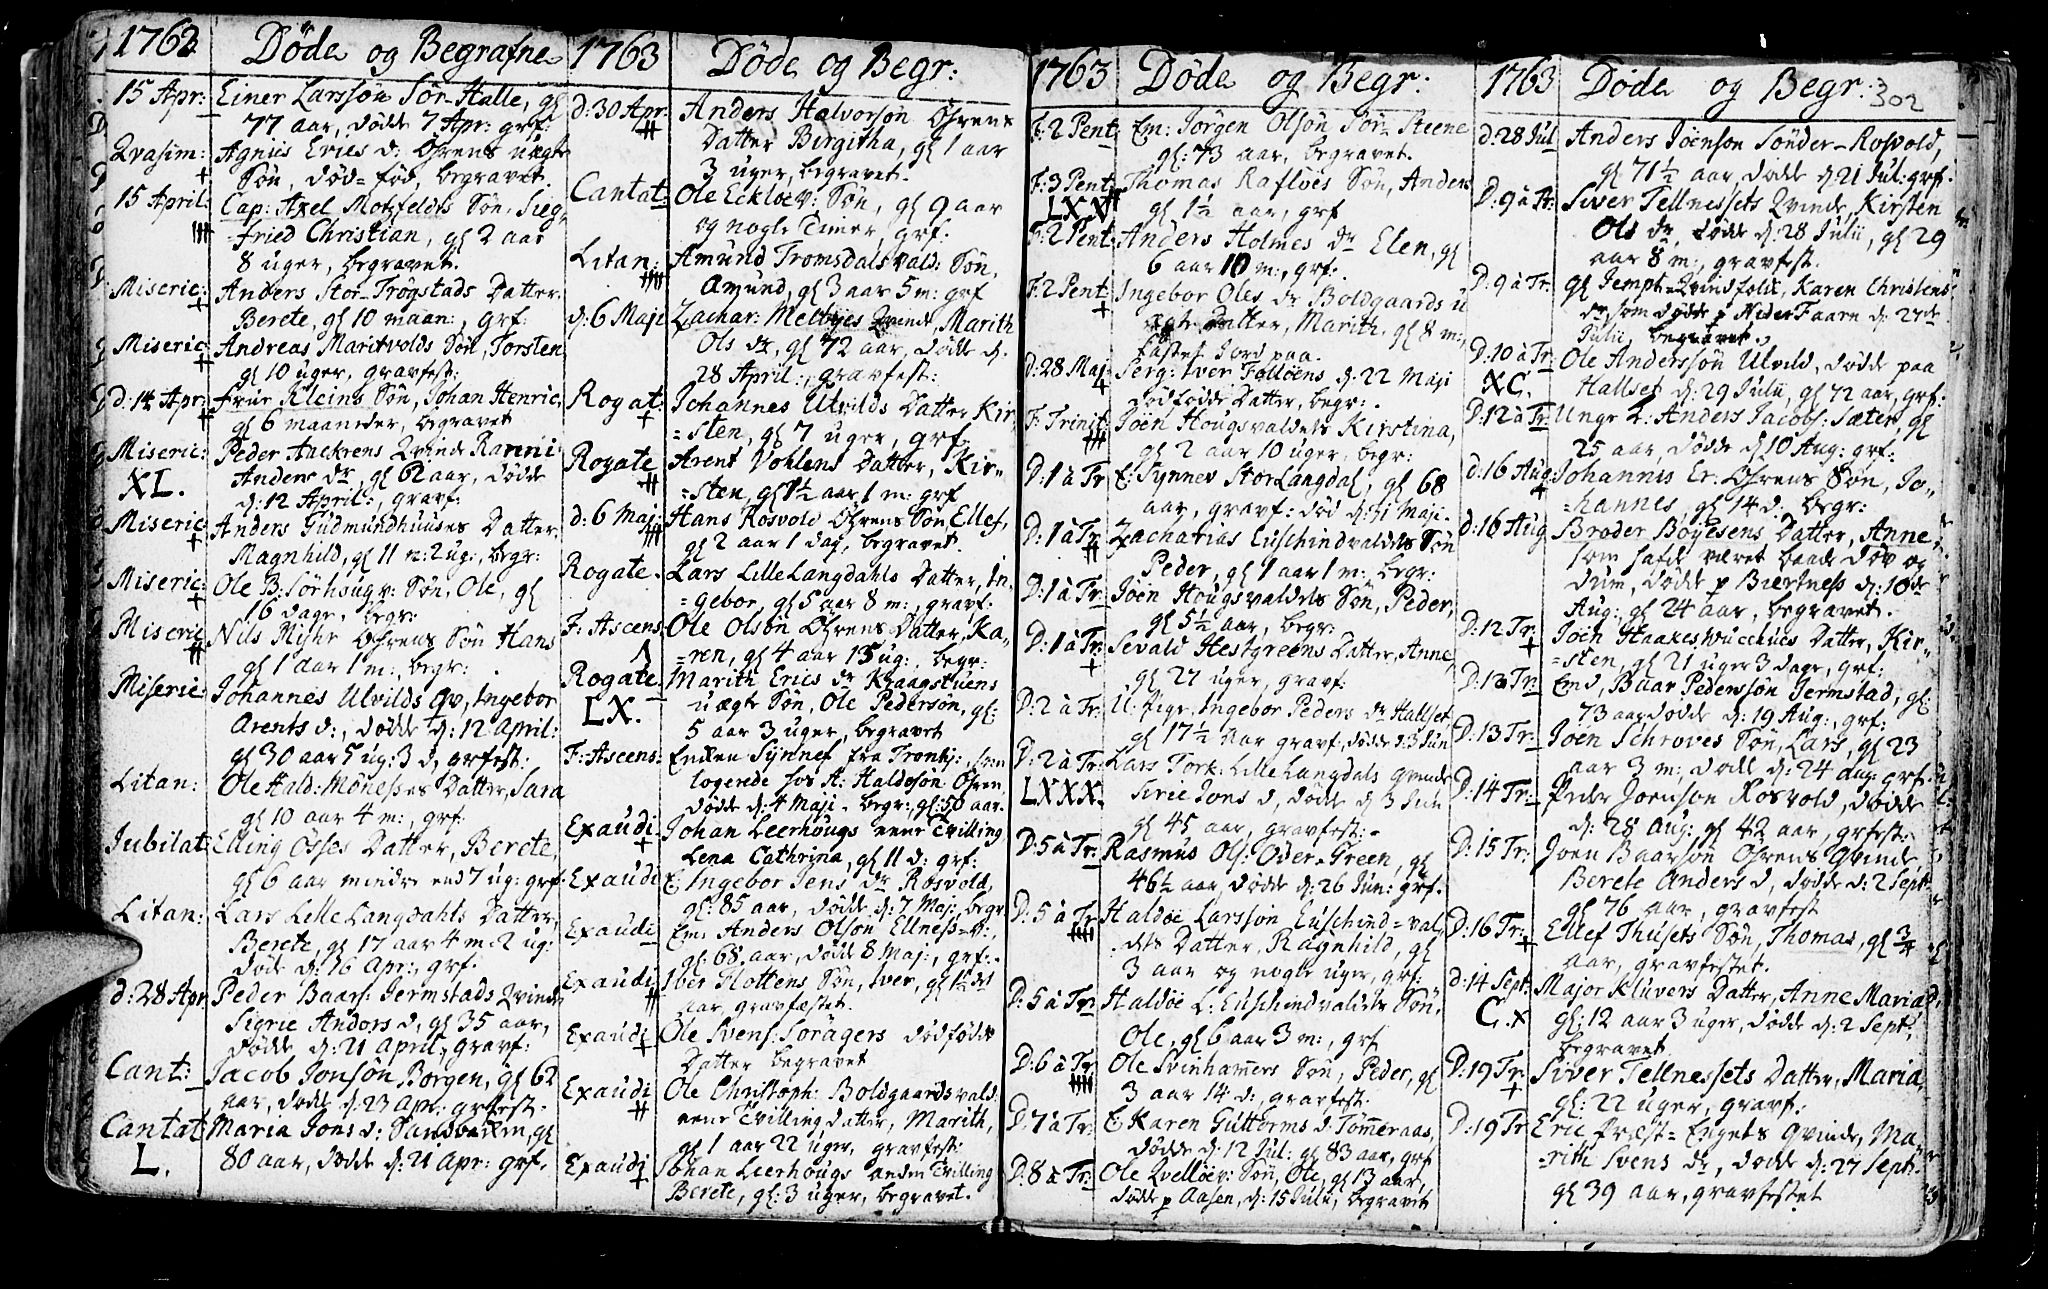 1763 Døde og Begrafne
15 Apr: Einer Larssøn Sør-Halle, gl
77 aar, døde 7 Apr: grf:
Qvasim: Agnus Erics d: Øhrens uægte
Søn, død=fød, begravet.
15 April: Cap: Axel Motzfeldts Søn, Sieg-
fried Christian, gl 2 aar
8 uger, begravet.
Miseric: Anders Stor-Trøgstads Datter
Berete, gl 10 maan:, grf:
Miseric: Andreas Maritvolds Søn, Torsten
gl 10 uger, gravfest:
D: 14 Apr: Frue Kleins Søn, Johan Henric,
gl 6 maaneder, begravet
Miseric: Peder Aaekrens Qvinde Rannii
Anders dr, gl 62 aar, døde
XL. d: 12 April:, gravf:
Miseric: Anders Gudmundhuuses Datter
Magnhild, gl 11 m: 2 ug:, begr:
Miseric: Ole B: Sørhougv: Søn, Ole, gl
16 dage, begr:
Miseric: Nils Myhr Øhrens Søn Hans
gl 1 aar 1 m:, begr:
Miseric: Johannes Utvilds Qv, Ingebor
Arents d:, døde d: 12 April:
gl 30 aar 5 ug: 3 d, grfest:
Litan: Ole Hald: Mønesses Datter, Sara
gl 10 aar 4 m:, grf:
Jubilat: Elling Østes Datter, Berete,
gl 6 aar mindre end 7 ug: grf:
Litan: Lars Lille Langdahls Datter,
Berete, gl 17 aar 4 m: 2 ug:
døde d: 16 Apr:, grf.
d: 28 Apr Peder Baars: Jermstads Qvinde
Sigrie Andors d, gl 35 aar,
døde d: 21 April:, gravf:
Cant: Jacob Jonsøn Borgen, gl 62
aar, døde d: 23 Apr: grfest:
Cantat Maria Jons d: Sandbækken, gl
L. 80 aar, døde d: 21 Apr: grf.
1763 Døde og Begr:
d: 30 Apr: Anders Halvorsøn Øhrens
Datter Birgitha, gl 1 aar
3 uger, begravet.
Cantat: Ole Eckløev: Søn, gl 9 aar
og nogle Timer, grf:
Litan: Amund Tromsdalsvald: Søn,
Amund, gl 3 aar 5 m: grf
d: 6 Maji Zachar: Melbyes Qvinde, Marith
Ols dr, gl 72 aar, døde d.
28 April:, gravfest:
Rogat: Johannes Utvilds Datter Kir,
=sten, gl 7 uger, grf.
Rogate Arent Vohlens Datter, Kir-
=sten, gl 1½ aar 1 m: grf
d: 6 Maj: Hans Rosvold Øhrens Søn Ellef,
gl 2 aar 1 dag, begravet.
Rogate. Lars Lille Langdahls Datter, In-
=gebor, gl 5 aar 8 m:, gravf:
F: Ascens: Ole Olsøn Øhrens Datter, Ka-
=ren, gl 4 aar 15 ug:, begr:
Rogate. Marith Erics dr Kraagstuens
LX. uægte Søn, Ole Pedersøn, gl:
5 aar 3 uger, begravet
F: Ascens: Enken Synnef fra Tronhj:, som
logerede hos A: Haldosøn Øhren,
døde d: 4 Maji - begr:, gl: 50 aar.
Exaudi Johan Leerhougs eene Tvilling
Lena Cathrina, gl 11 d: grf:
Exaudi E: Ingebor Jens dr Rosvold,
gl: 85 aar, døde d: 7 Maj:, begr
Exaudi Em: Anders Olsøn Ellness-v:,
gl: 68 aar, døde 8 Maj:, grf:.
Exaudi Iver Flottens Søn, Iver, gl 1½
aar, gravfæstet.
Exaudi Ole Svens: Sorågers dødfødte
Datter begravet
Exaudi Ole Christoph: Boldgaardsvald:
eene Tvilling Datter, Marith,
gl 1 aar 22 uger, gravfest:
Exaudi Johan Leerhougs anden Tvilling
Berete, gl: 3 uger, begravet.
1763 Døde og Begr:
F: 2 Pent Em: Jørgen Olsøn Sør-Steene
gl: 73 aar, begravet.
F: 3 Pent Thomas Rafloes Søn, Anders
LXX gl 1½ aar, grf
F: 2 Pent Anders Holmes dr Elen, gl
6 aar 10 m:, grf:
F: 2 Pent Ingebor Oles dr Boldgaards u
ægte Datter, Marith, gl 8 m:,
kastet Jord paa.
D: 28 Maj Serg: Iver Falløens d: 22 Maji
dødfødde Datter, begr:.
F: Trinit Joen Hougsvaldets Kirstina,
gl 2 aar 10 uger, begr:
D: 1 à Tr E: Synnev Stor Langdal, gl 68
aar, gravf: død d: 21 Maji.
D: 1 à Tr Zacharias Euschindvaldets Søn
Peder, gl 1 aar 1 m:, begr:
D: 1 à Tr: Joen Hougsvaldets Søn, Peder,
gl 5½ aar, begr:
D: 1 à Tr: Sevald Hestgreens Datter, Anne,
gl 27 uger, gravf:
D: 2 à Tr: U: Pige, Ingebor Peders dr Hallset
gl 17½ aar gravf:, døde d: 3 Jun
D: 2 à Tr: Lars Tork: Lille Langdals Qvinde
LXXX. Siric Jons d, døde d: 3 Jun
gl 45 aar, gravfest:-
D: 5 à Tr: Rasmus Ols: Oder-Green, gl
46½ aar, døde d: 26 Jun: grf.
D: 5 à Tr Haldøe Larssøn Euschind=val-
dets Datter, Ragnhild, gl
3 aar og nogle uger, grf:
D: 5 à Tr Haldøe L: Euschindvaldets Søn,
Ole, gl 6 aar 3 m:, grf
D: 6 à Tr Ole Svinhamers Søn, Peder, gl
3 aar 14 d:, gravfest:
D: 7 à Tr: E: Karen Guttorms d Tømeraas,
døde d: 12 Jul: gl 83 aar, grf
D: 8 à Tr: Ole Qvelløev: Søn, Ole, gl 13 aar,
døde p Aasen, d: 15 Julii, begravet
1763 Døde og Begr:
302
d: 28 Jul Anders Joensøn Sønder-Rosvold,
gl 71½ aar, døde d: 21 Jul: grf.
D: 9 à Tr: Siver Tellnessets Qvinde, Kirsten
Ols dr, døde d: 28 Julii, gl 29
aar 8 m:, gravfest.
D: 9 à Tr. gl Jempt-Qvindfolk, Karen Christens
dr, som døde p Neder Faaren d: 27de
Julii begravet.
D: 10 à Tr: Ole Anderssøn Utvild, døde paa
XC. Hallset d: 29 Julii, gl 72 aar, grf:
D: 12 à Tr: Unge K: Anders Jacobs: Sæter, gl
25 aar, døde d: 10 Aug: grf:
d: 16 Aug: Johannis Er: Øhrens Søn, Jo-
=hannes, gl 14 d: begr:
d: 16 Aug Broder Boyesens Datter, Anne,
som hafde været baade døv og
dum, døde p Biertness d: 10de
Aug: gl 24 aar, begravet.
D: 12 Tr: Joen Haaxes Datter, Kir-
=sten, gl 21 uger 3 dage, grf:
D: 13 Tr: Em:, Baar Pederssøn Jermstad, gl:
73 aar døde d: 19 Aug:, grf:
D: 13 Tr: Joen Schroves Søn, Lars, gl 23
aar 3 m:, døde d: 24 aug: grf
D: 14 Tr: Peder Joensøn Rosvold, døde
d: 28 Aug: gl 42 aar, grfest.
D: 15 Tr: Joen Baarsøn Øhrens Qvinde,
Berete Anders d, døde d: 2 Sept:
gl 76 aar, gravfest
D: 16 Tr: Ellef Thusets Søn, Thomas, gl ¾
aar, gravfestet.
d: 14 Sept: Major Kluvers Datter, Anne Maria
C. gl: 12 aar 3 uger, døde d: 2 Sept:
begravet
D: 19 Tr: Siver Tellnessets Datter, Maria,
gl: 22 uger, gravf:
D: 19 Tr Eric Præst=Engets Qvinde, Ma-
=rith Svens dr, døde d: 27 Sept:
gl 39 aar, gravfestet